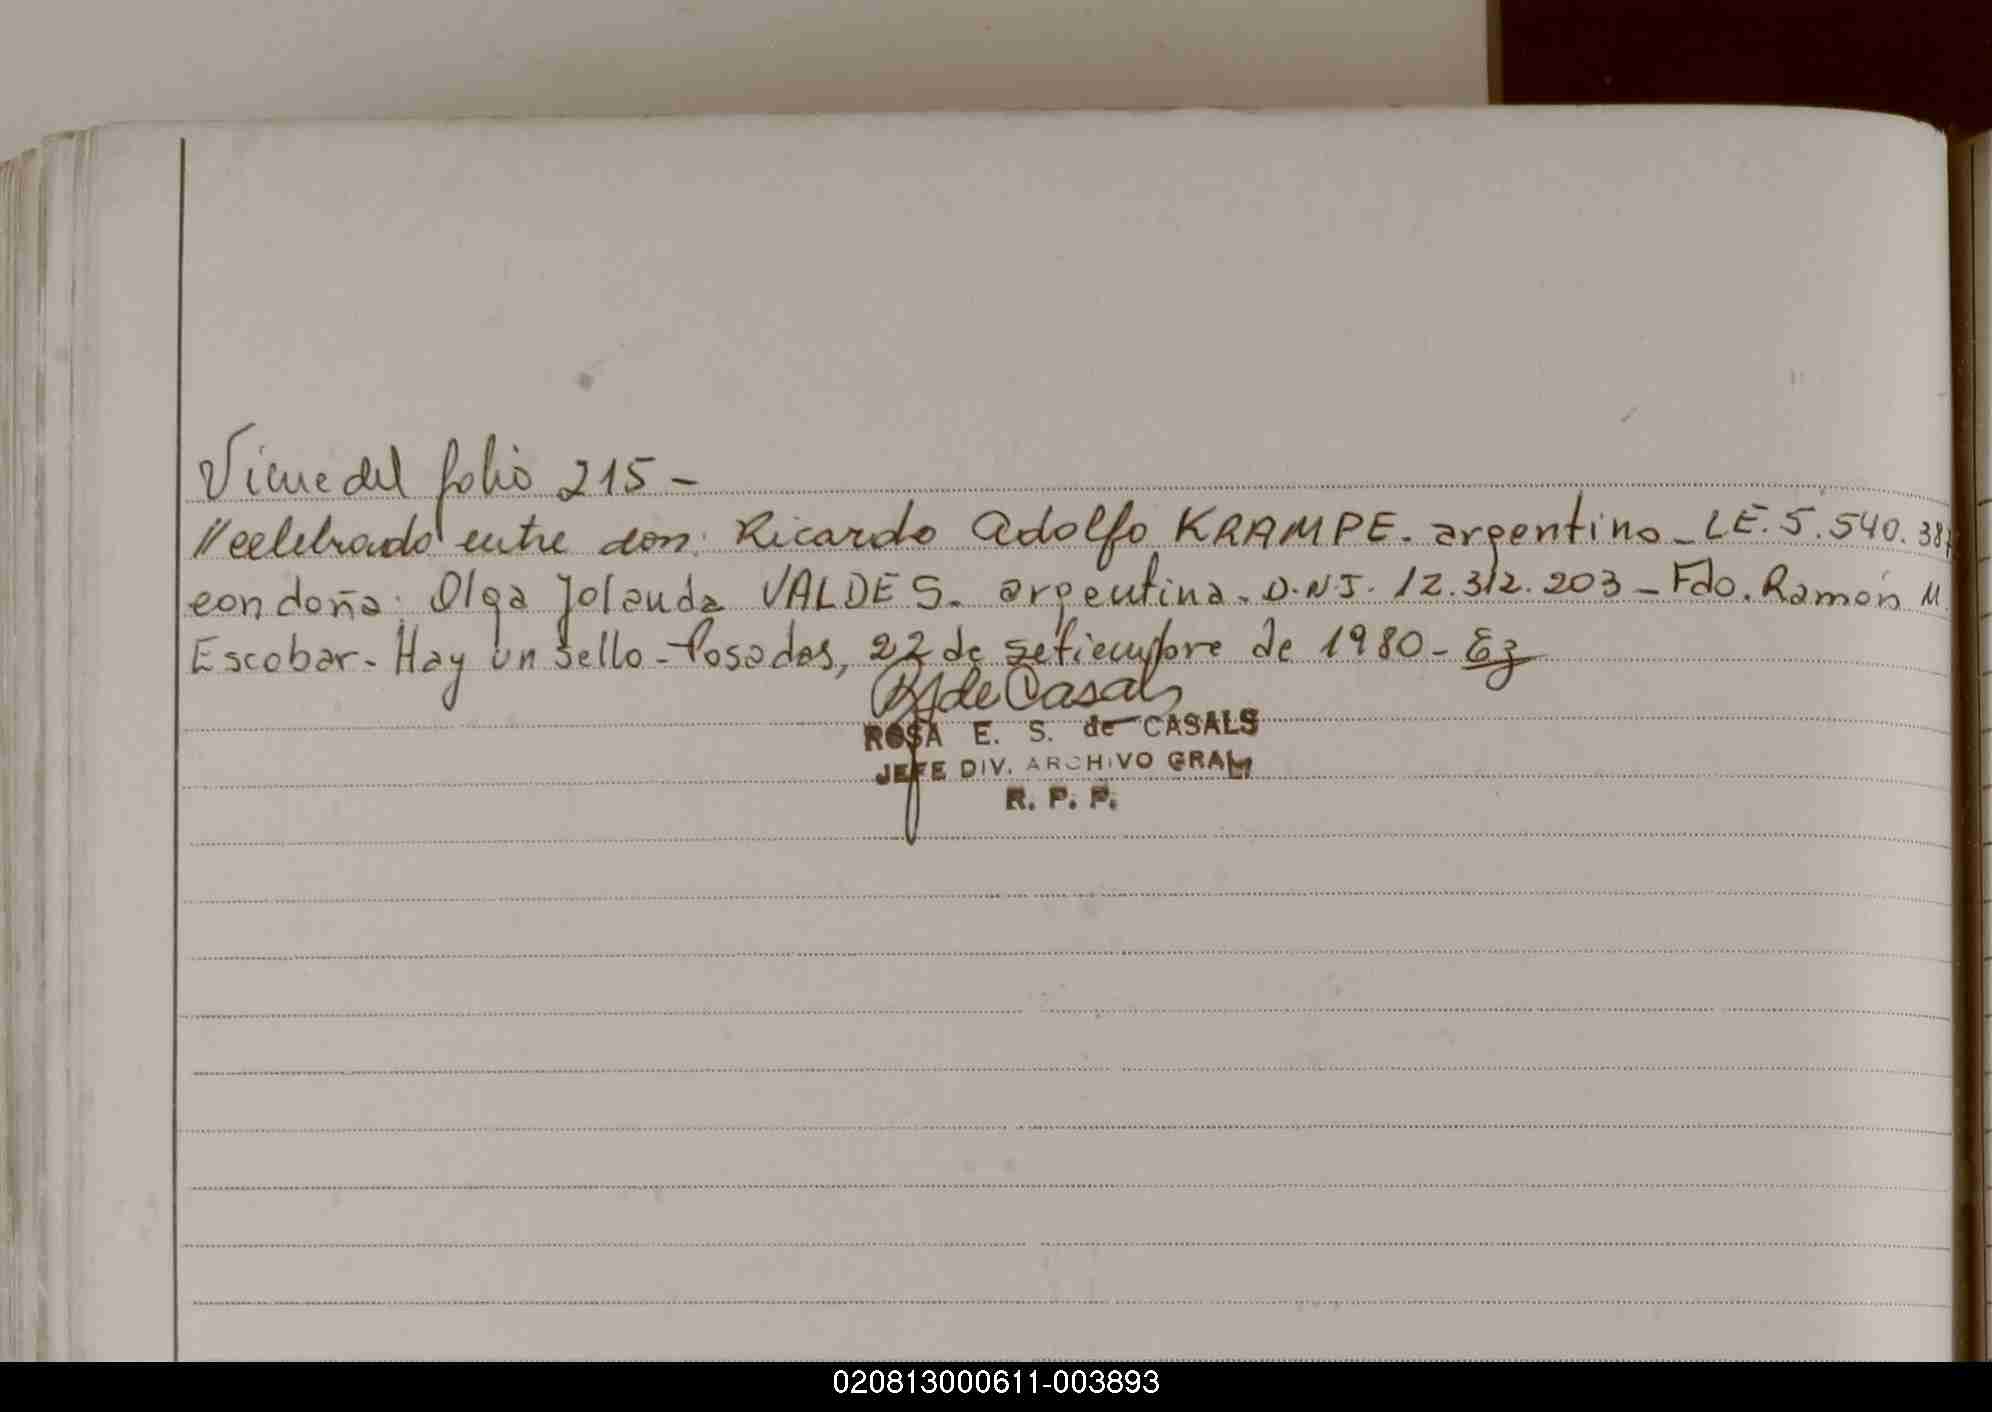 Viene del folio 215 -
//celebrado entre don: Ricardo Adolfo KRAMPE. argentino - LE. 5.540.387
con doña: Olga Yolanda VALDES. argentina. D.N.I. 12.312.203 - Fdo. Ramón M.
Escobar. Hay un sello - Posadas, 22 de setiembre de 1980 - Ez
RS de Casals
ROSA E. S. de CASALS
JEFE DIV. ARCHIVO GRAL
R. P. P.
020813000611-003893